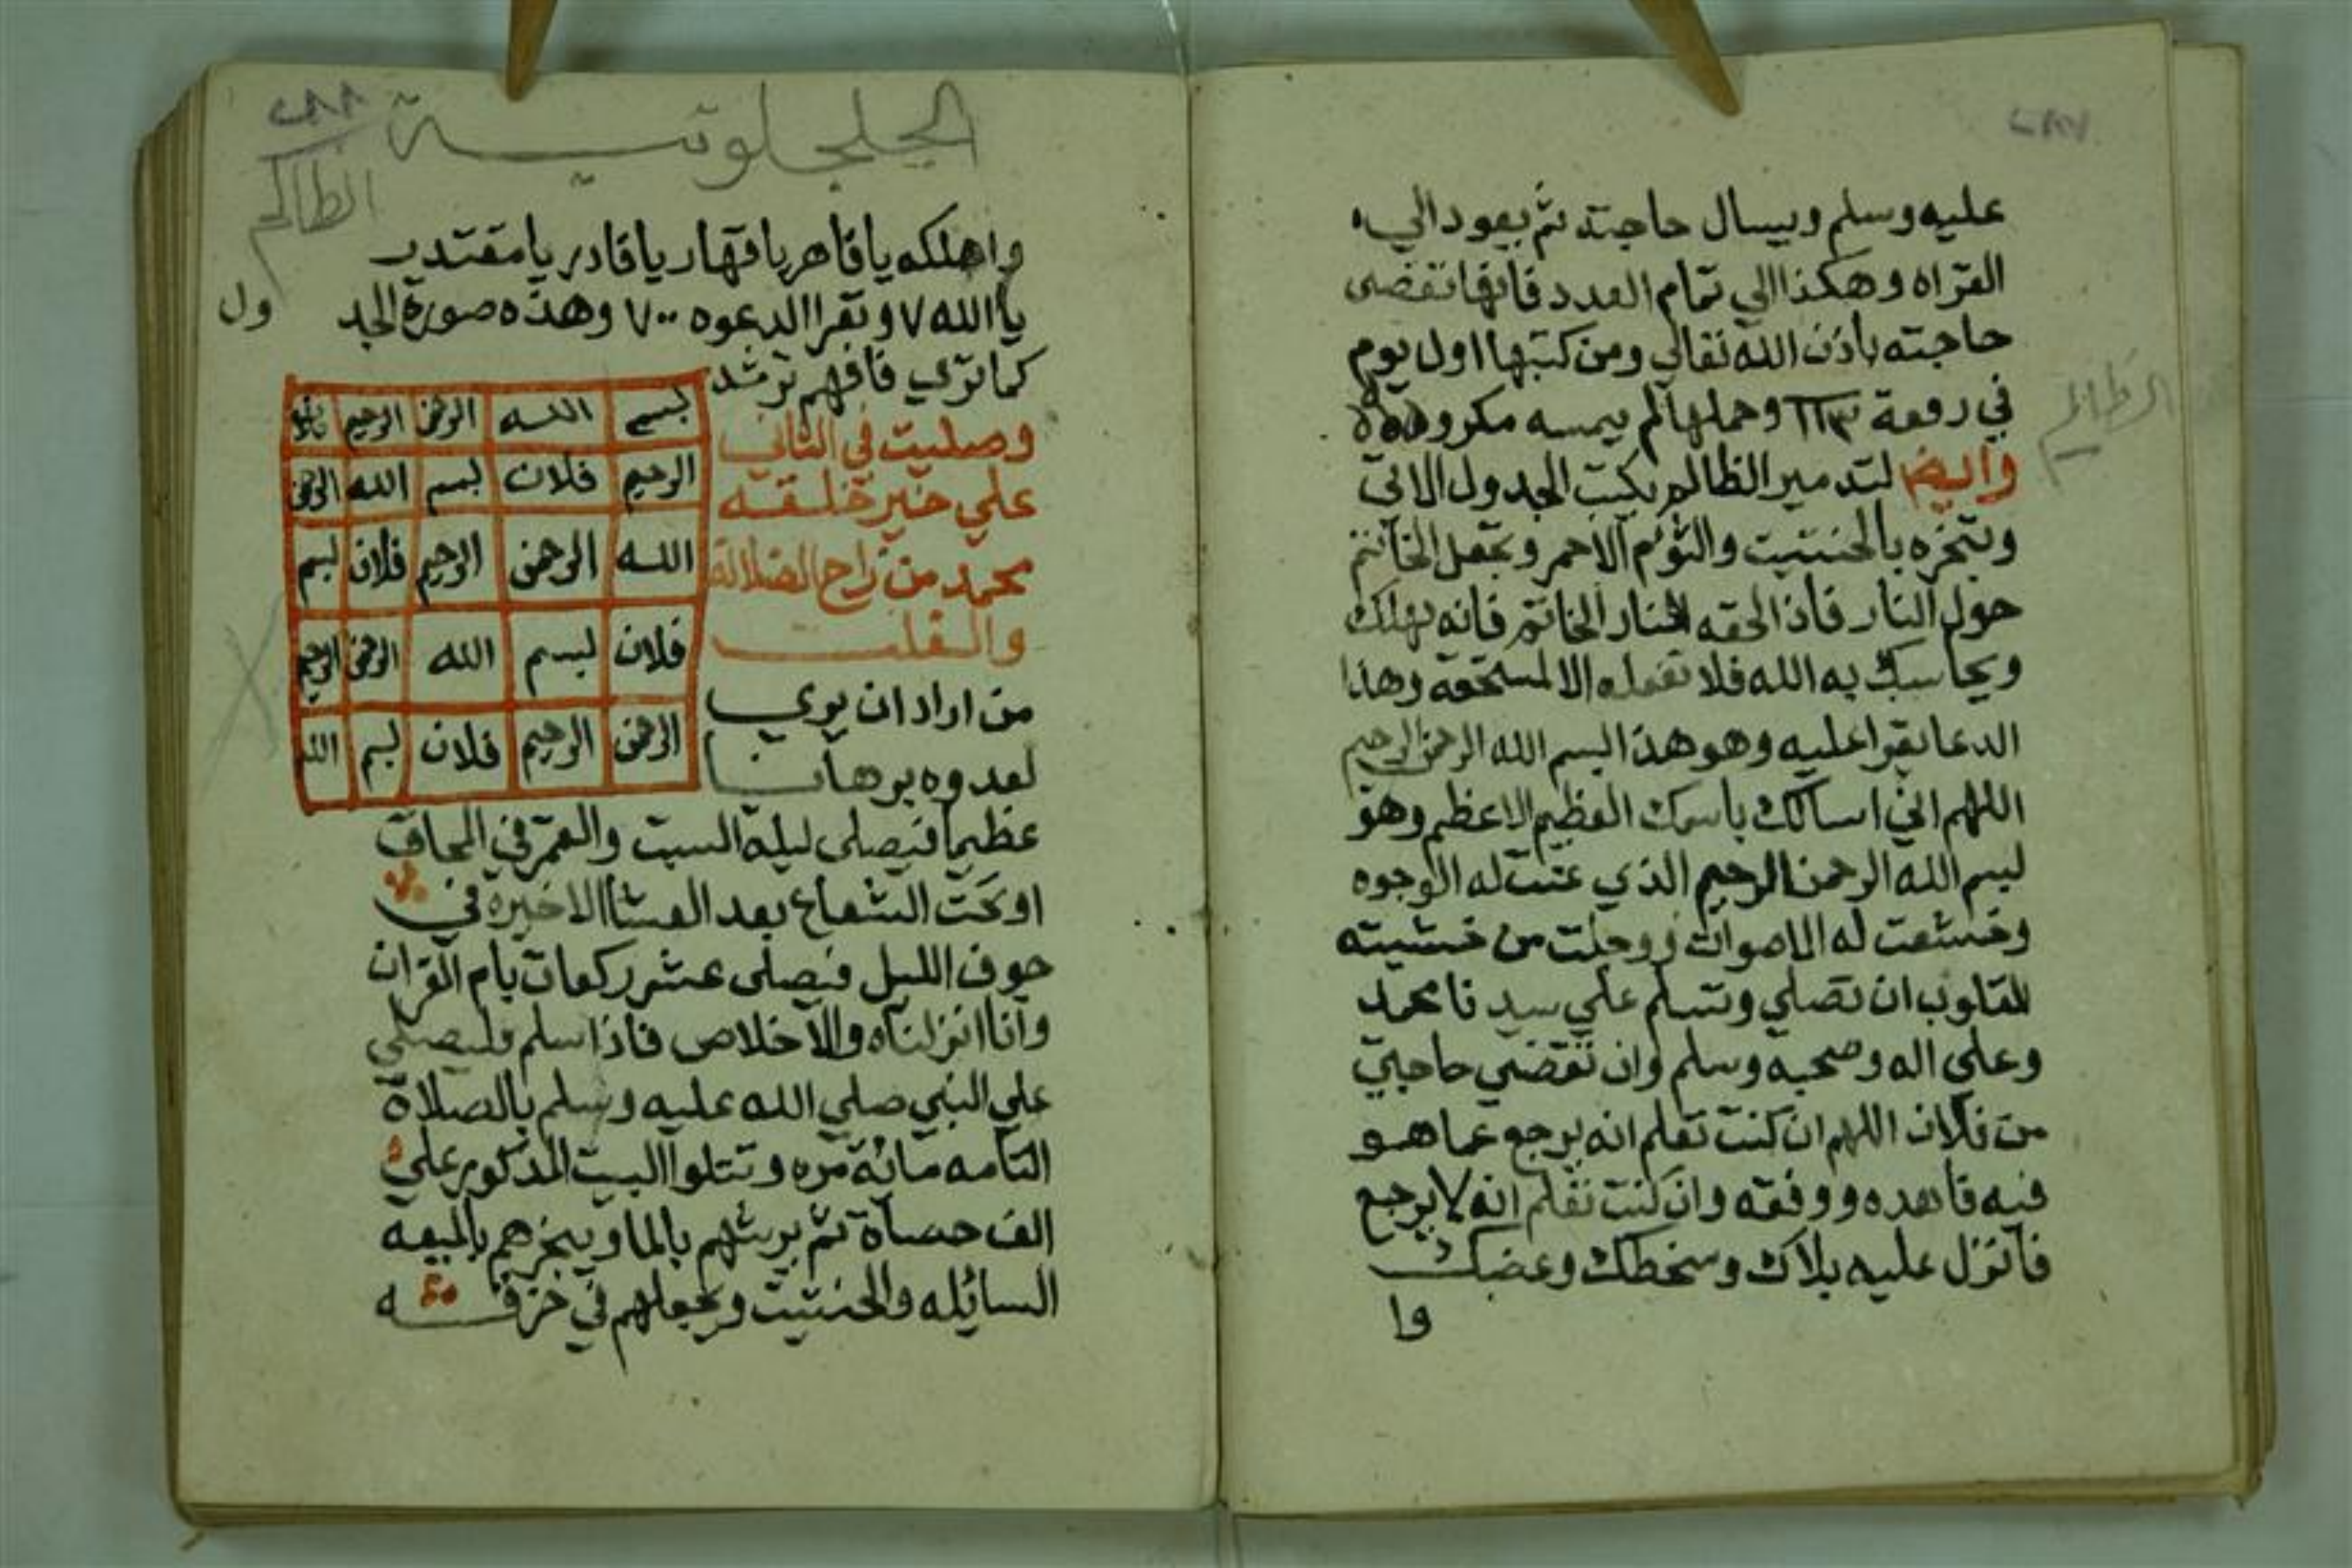 عليه وسلم ويسال حاجته ثم يعود الي
القراه وهكذا الي تمام العدد فانها تقضى
حاجته باذن الله تعالي ومن كتبها اول يوم
في رقعة ١١٣ وحملها لم يمسه مكروه
وايضا لتدمير الظالم يكتب الجدول الاتي
وتبخره بالحنتيت والثوم الاحمر وتجعل الخاتم
حول النار فاذا لحقه النار الخاتم فانه يهلك
ويحاسبك به الله فلا تفعله الا لمستحقه وهذا
الدعا تقرا عليه وهو هذا بسم الله الرحمن الرحيم
اللهم اني اسالك باسمك العظيم الاعظم وهو
بسم الله الرحمن الرحيم الذي عنت له الوجوه
وخشعت له الاصوات ووجلت من خشيته
القلوب ان تصلي وتسلم علي سيدنا محمد
وعلي اله وصحبه وسلم وان تقضي حاجتي
من فلان اللهم ان كنت تعلم انه يرجع عما هو
فيه فاهده ووفقه وان كنت تعلم انه لا يرجع
فانزل عليه بلاك وسخطك وغضبك
وا
الظالم
الجلجلوتية
٢٨٨
الظالم
واهلكه يا قاهر يا قهار يا قادر يا مقتدر
يا الله ٧ وتقرا الدعوه ٧٠٠ وهذه صورة الجد
ول
كما تري فافهم ترشد
وصليت في الثاني
علي خير خلقه
محمد من زاح الضلالة
والغلت
من اراد ان يري
لعدوه برهانا
بسم الله الرحمن الرحيم
الرحيم فلان بسم الله الرحمن
الله الرحمن الرحيم فلان بسم
فلان بسم الله الرحمن الرحيم
الرحمن الرحيم فلان بسم الله
عظيما فيصلى ليلة السبت والقمر في المحاق
او تحت الشعاع بعد العشا الاخيره في
جوف الليل فيصلى عشر ركعات بام القران
وانا انزلناه والاخلاص فاذا سلم فليصلي
علي النبي صلي الله عليه وسلم بالصلاة
التامه مائة مره وتتلوا البيت المذكور علي
الف حصاة ثم يرشهم بالما ويبخرهم بالميعه
السائله والحنتيت ويجعلهم في خرقه